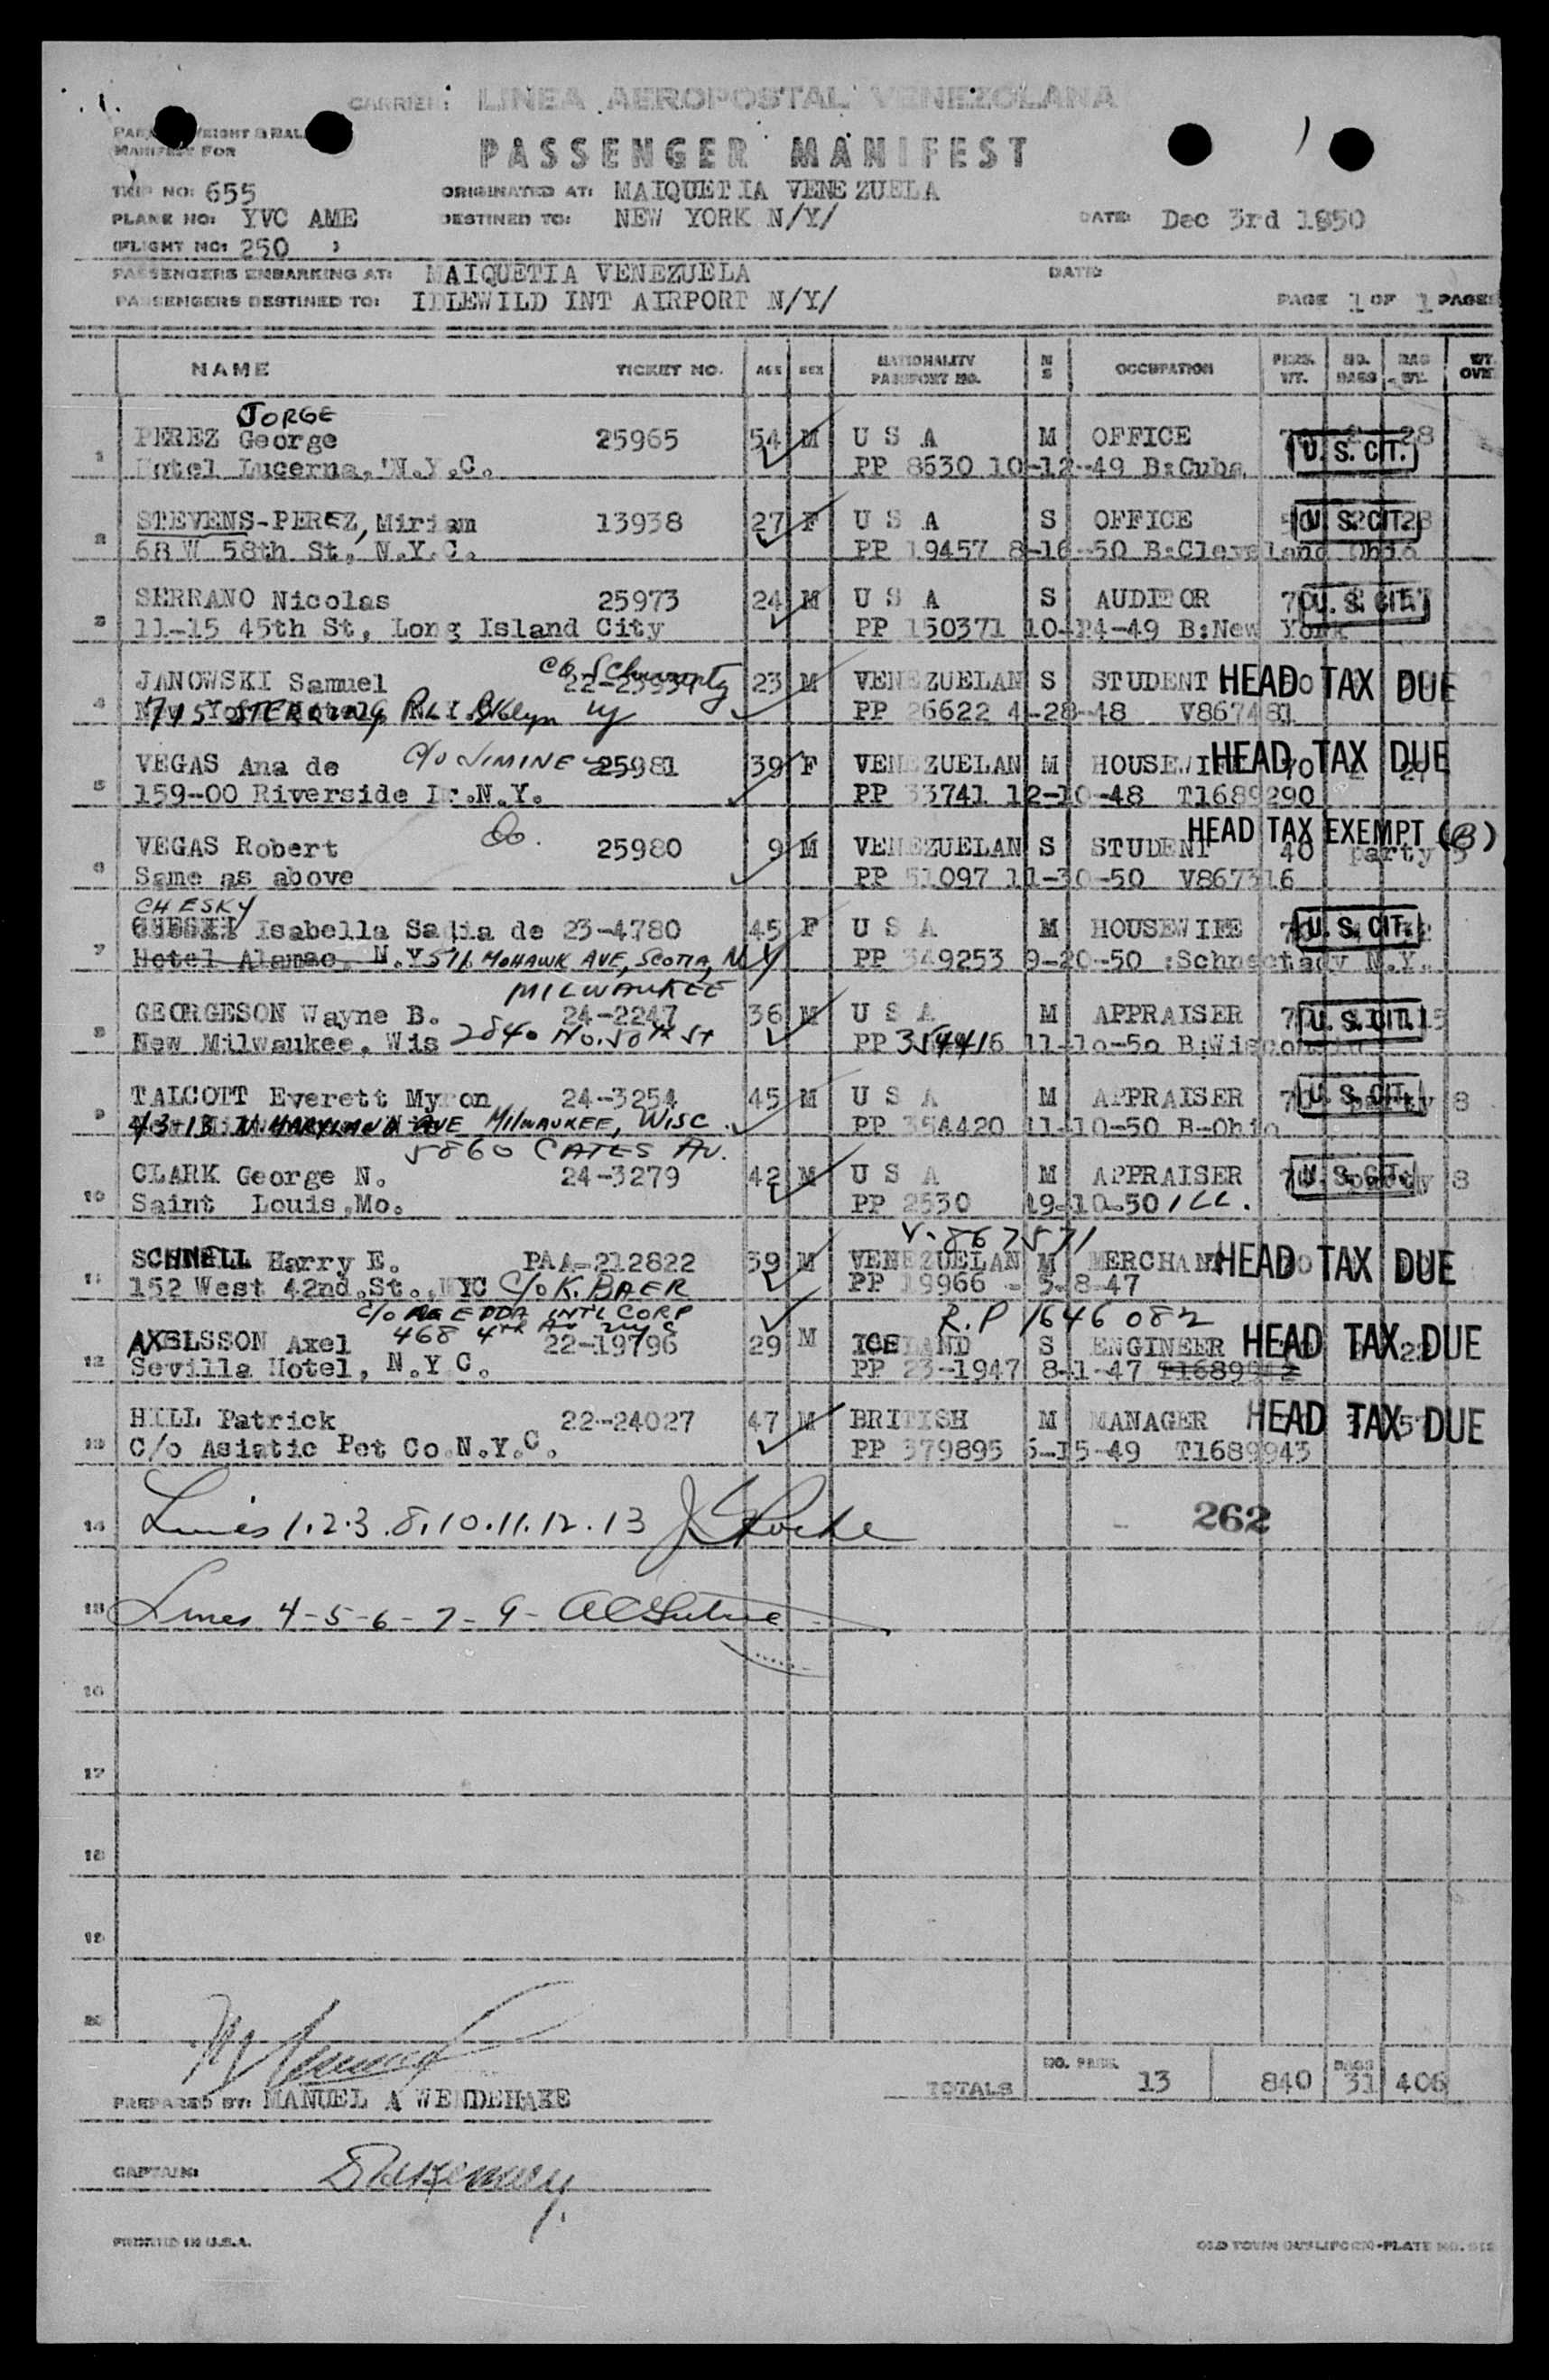 CARRIER: LINEA AEROPOSTAL VENEZOLANA
MANIFEST FOR
PASSENGER MANIFEST
TRIP NO: 655 ORIGINATED AT: MAIQUETIA VENEZUELA
PLANE NO: YVC AME DESTINED TO: NEW YORK N/Y/ DATE: Dec 3rd 1950
(FLIGHT NO: 250 )
PASSENGERS EMBARKING AT: MAIQUETIA VENEZUELA DATE:
PASSENGERS DESTINED TO: IDLEWILD INT AIRPORT N/Y/ PAGE 1 OF 1 PAGES
NAME TICKET NO. AGE SEX NATIONALITY PASSPORT NO. M S OCCUPATION PERS. WT. NO. BAGS BAG WT. WT. OVER
JORGE
PEREZ George 25965 54 M U S A M OFFICE 28
1 Hotel Lucerna, N.Y.C. PP 8630 10-12-49 B:Cuba U. S. CIT.
STEVENS-PEREZ, Miriam 13938 27 F U S A S OFFICE U. S. CIT. 28
2 68 W 58th St, N.Y.C. PP 19457 8-16-50 B:Cleveland Ohio
SERRANO Nicolas 25973 24 M U S A S AUDITOR U. S. CIT.
3 11-15 45th St, Long Island City PP 150371 10-24-49 B:New York
c/o Schwartz
JANOWSKI Samuel 23 M VENEZUELAN S STUDENT HEAD TAX DUE
4 715 STERLING PL. Bklyn NY PP 26622 4-28-48 V867481
VEGAS Ana de c/o JIMINEZ 25981 39 F VENEZUELAN M HOUSEWIFE HEAD TAX DUE
5 159-00 Riverside Dr.N.Y. PP 33741 12-10-48 T1689290
HEAD TAX EXEMPT (B)
VEGAS Robert Do. 25980 9 M VENEZUELAN S STUDENT 40 party
6 Same as above PP 51097 11-30-50 V867316
CHESKY
Isabella Sadia de 23-4780 45 F U S A M HOUSEWIFE U. S. CIT.
7 Hotel Alamac, N.Y 511 MOHAWK AVE, SCOTIA, NY PP 349253 9-20-50 :Schnectady N.Y.
MILWAUKEE
GEORGESON Wayne B. 24-2247 36 M U S A M APPRAISER U. S. CIT. 15
8 New Milwaukee, Wis 2840 No. 50th St PP 354416 11-10-50 B:Wisconsin
TALCOTT Everett Myron 24-3254 45 M U S A M APPRAISER U. S. CIT. party 8
9 4313 N MARYLAND AVE MILWAUKEE, WISC. PP 354420 11-10-50 B-Ohio
5860 CATES AV.
CLARK George N. 24-3279 42 M U S A M APPRAISER U. S. CIT. party 8
10 Saint Louis,Mo. PP 2530 19-10-50 ILL.
V-867571
SCHNELL Harry E. PAA-212822 39 M VENEZUELAN M MERCHANT HEAD TAX DUE
11 152 West 42nd.St.,NYC C/o K. BAER PP 19966 - 5-8-47
c/o EDDA INTL CORP R.P 1646082
468 4th Av NYC
AXELSSON Axel 22-19796 29 M ICELAND S ENGINEER HEAD TAX DUE
12 Sevilla Hotel, N.Y.C. PP 23-1947 8-1-47 T1689942
HILL Patrick 22-24027 47 M BRITISH M MANAGER HEAD TAX DUE
13 C/o Asiatic Pet Co.N.Y.C. PP 379895 5-15-49 T1689943
14 Lines 1.2.3.8.10.11.12.13 262
15 Lines 4-5-6-7-9-
16
17
18
19
20
TOTALS NO. PASS. 13 840 BAGS 31 406
PREPARED BY: MANUEL A WENDEHAKE
CAPTAIN:
PRINTED IN U.S.A. OLD TOWN DUPLIFORM-PLATE NO.